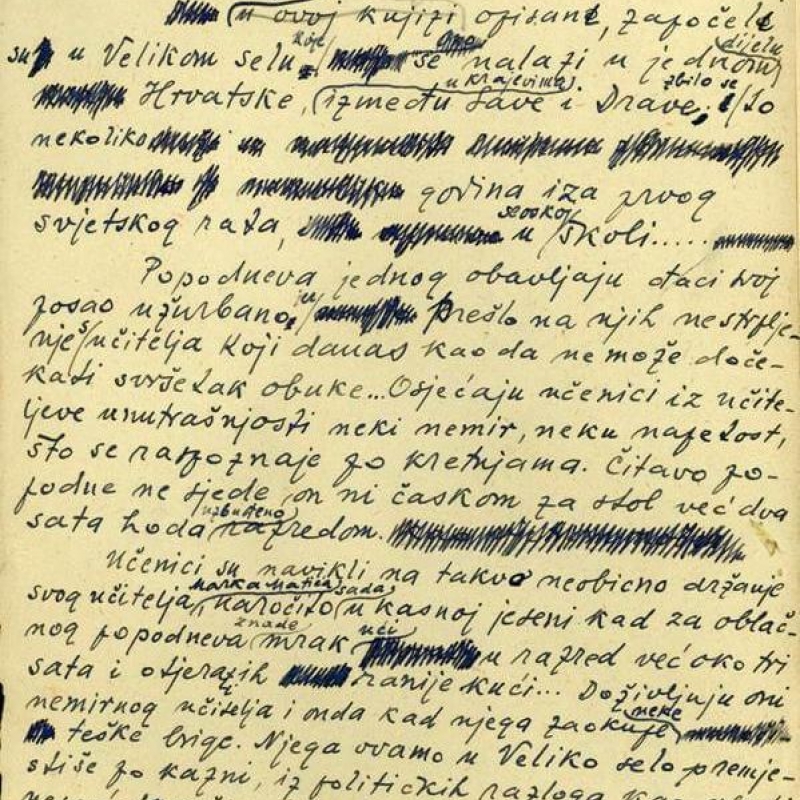 u ovoj knjizi opisane, započele
su u Velikom selu, koje se nalazi u jednom dijelu
Hrvatske, između u krajevima Save i Drave, zbilo se to
nekoliko
godina iza prvog
svjetskog rata, u seoskoj školi.....
Popodneva jednog obavljaju đaci svoj
posao užurbano, jer prešlo na njih nestrplje-
nje učitelja koji danas kao da ne može doče-
kati svršetak obuke... Osjećaju učenici iz učite-
ljeve unutrašnjosti neki nemir, neku napetost,
što se raspoznaje po kretnjama. Čitavo po-
podne ne sjede on ni časkom za stol već dva
sata hoda uzbuđeno razredom.
Učenici su navikli na takvo neobično držanje
svog učitelja, Marka Matića, naročito sada u kasnoj jeseni kad za oblač-
nog popodneva znade mrak ući u razred već oko tri
sata i otjera ih ranije kući... Doživljuju oni
nemirnog učitelja i onda kad njega zaokupe neke
teške brige. Njega ovamo u Veliko selo premje-
stiše po kazni, iz političkih razloga